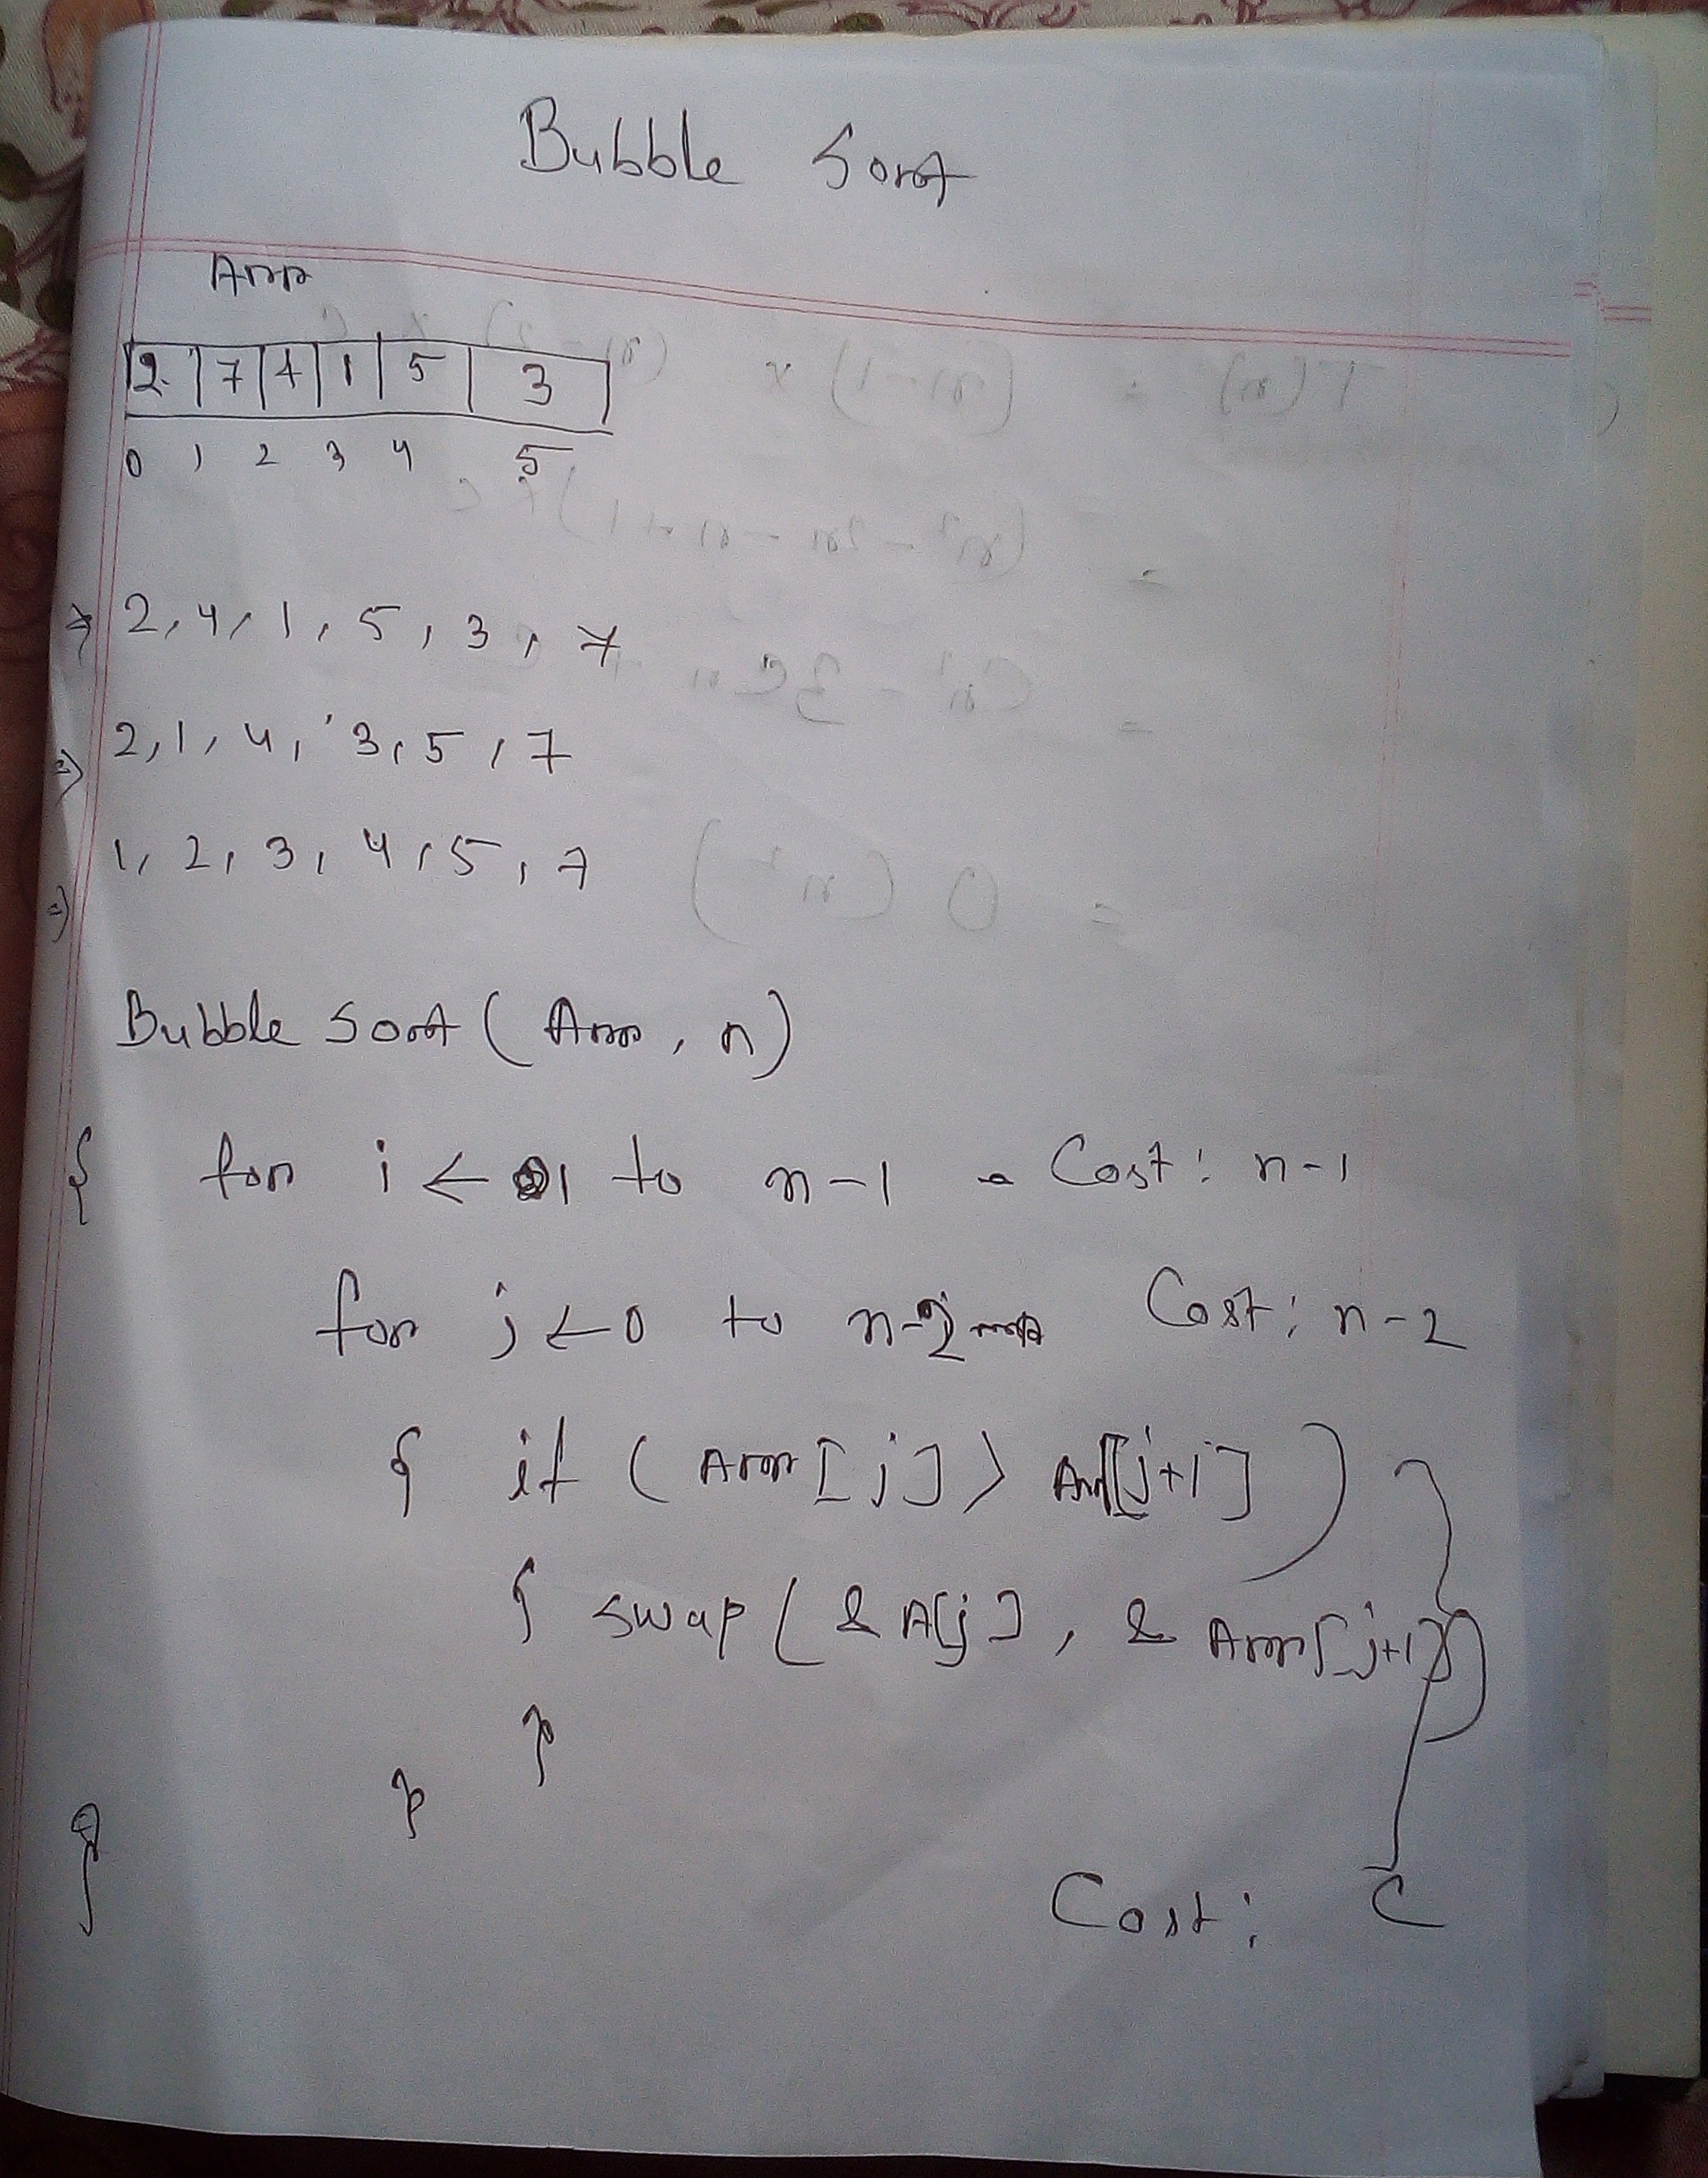 Bubble Sort
Arr
2 7 4 1 5 3
0 1 2 3 4 5
⇒ 2, 4, 1, 5, 3, 7
⇒ 2, 1, 4, 3, 5, 7
⇒ 1, 2, 3, 4, 5, 7
Bubble Sort ( Arr, n)
{ for i ← 1 to n-1 - Cost: n-1
for j ← 0 to n-2 Cost: n-2
{ if ( Arr [j] > Arr[j+1] )
{ swap ( & A[j], & Arr[j+1])
}
}
}
Cost: C